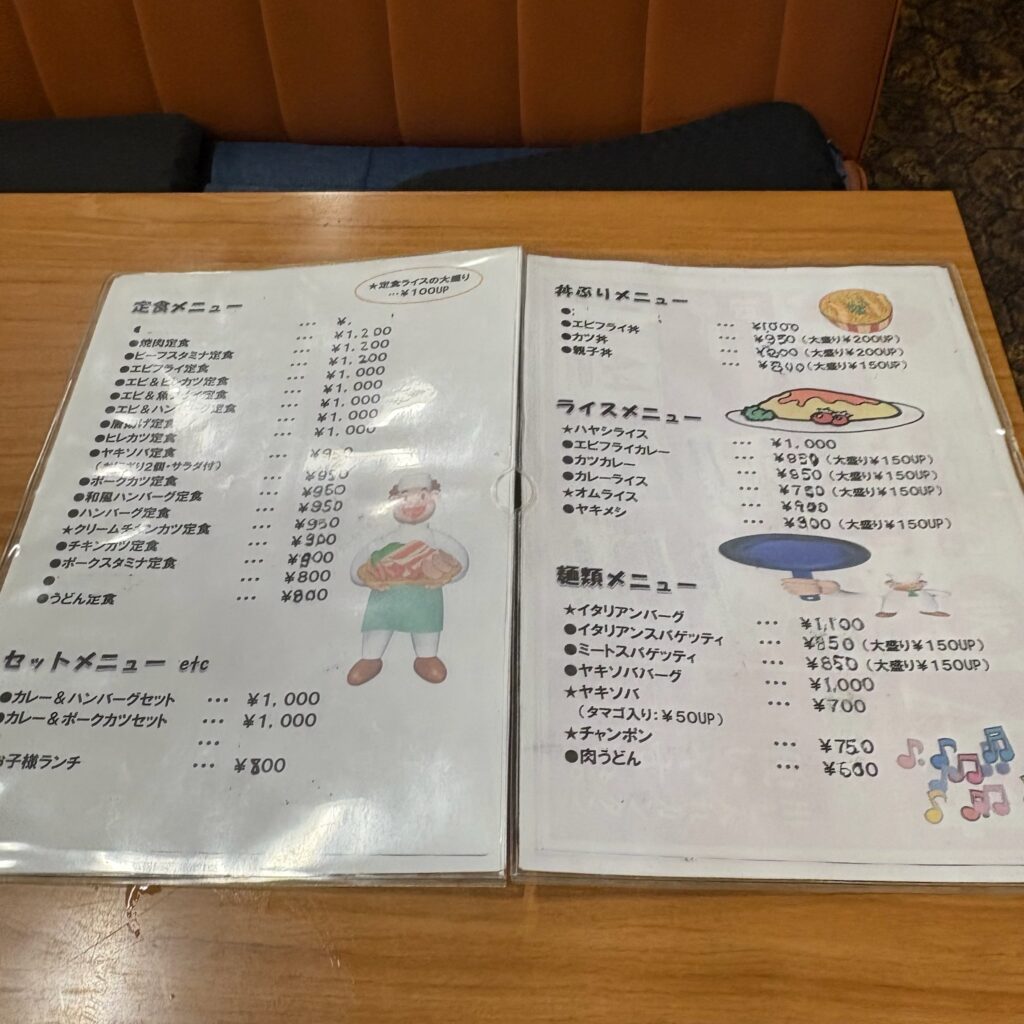 定食メニュー
★定食ライスの大盛り
…¥100UP
●焼肉定食 … ¥1,200
●ビーフスタミナ定食 … ¥1,200
●エビフライ定食 … ¥1,200
●エビ&ヒレカツ定食 … ¥1,000
●エビ&魚フライ定食 … ¥1,000
●エビ&ハンバーグ定食 … ¥1,000
●唐揚げ定食 … ¥1,000
●ヒレカツ定食 … ¥1,000
●ヤキソバ定食 … ¥950
(おにぎり2個・サラダ付)
●ポークカツ定食 … ¥950
●和風ハンバーグ定食 … ¥950
●ハンバーグ定食 … ¥950
★クリームチキンカツ定食 … ¥950
●チキンカツ定食 … ¥900
●ポークスタミナ定食 … ¥900
● … ¥800
●うどん定食 … ¥800
セットメニュー etc
●カレー&ハンバーグセット … ¥1,000
●カレー&ポークカツセット … ¥1,000
…
お子様ランチ … ¥800
丼ぶりメニュー
● … ¥1000
●エビフライ丼 … ¥950 (大盛り¥200UP)
●カツ丼 … ¥800 (大盛り¥200UP)
●親子丼 … ¥800 (大盛り¥150UP)
ライスメニュー
★ハヤシライス … ¥1,000
●エビフライカレー … (大盛り¥150UP)
●カツカレー … ¥850 (大盛り¥150UP)
●カレーライス … ¥750 (大盛り¥150UP)
★オムライス … ¥800
●ヤキメシ … (大盛り¥150UP)
麺類メニュー
★イタリアンバーグ … ¥1,100
●イタリアンスパゲッティ … ¥850 (大盛り¥150UP)
●ミートスパゲッティ … ¥850 (大盛り¥150UP)
●ヤキソババーグ … ¥1,000
★ヤキソバ … ¥700
(タマゴ入り:¥50UP)
★チャンポン … ¥750
●肉うどん … ¥600